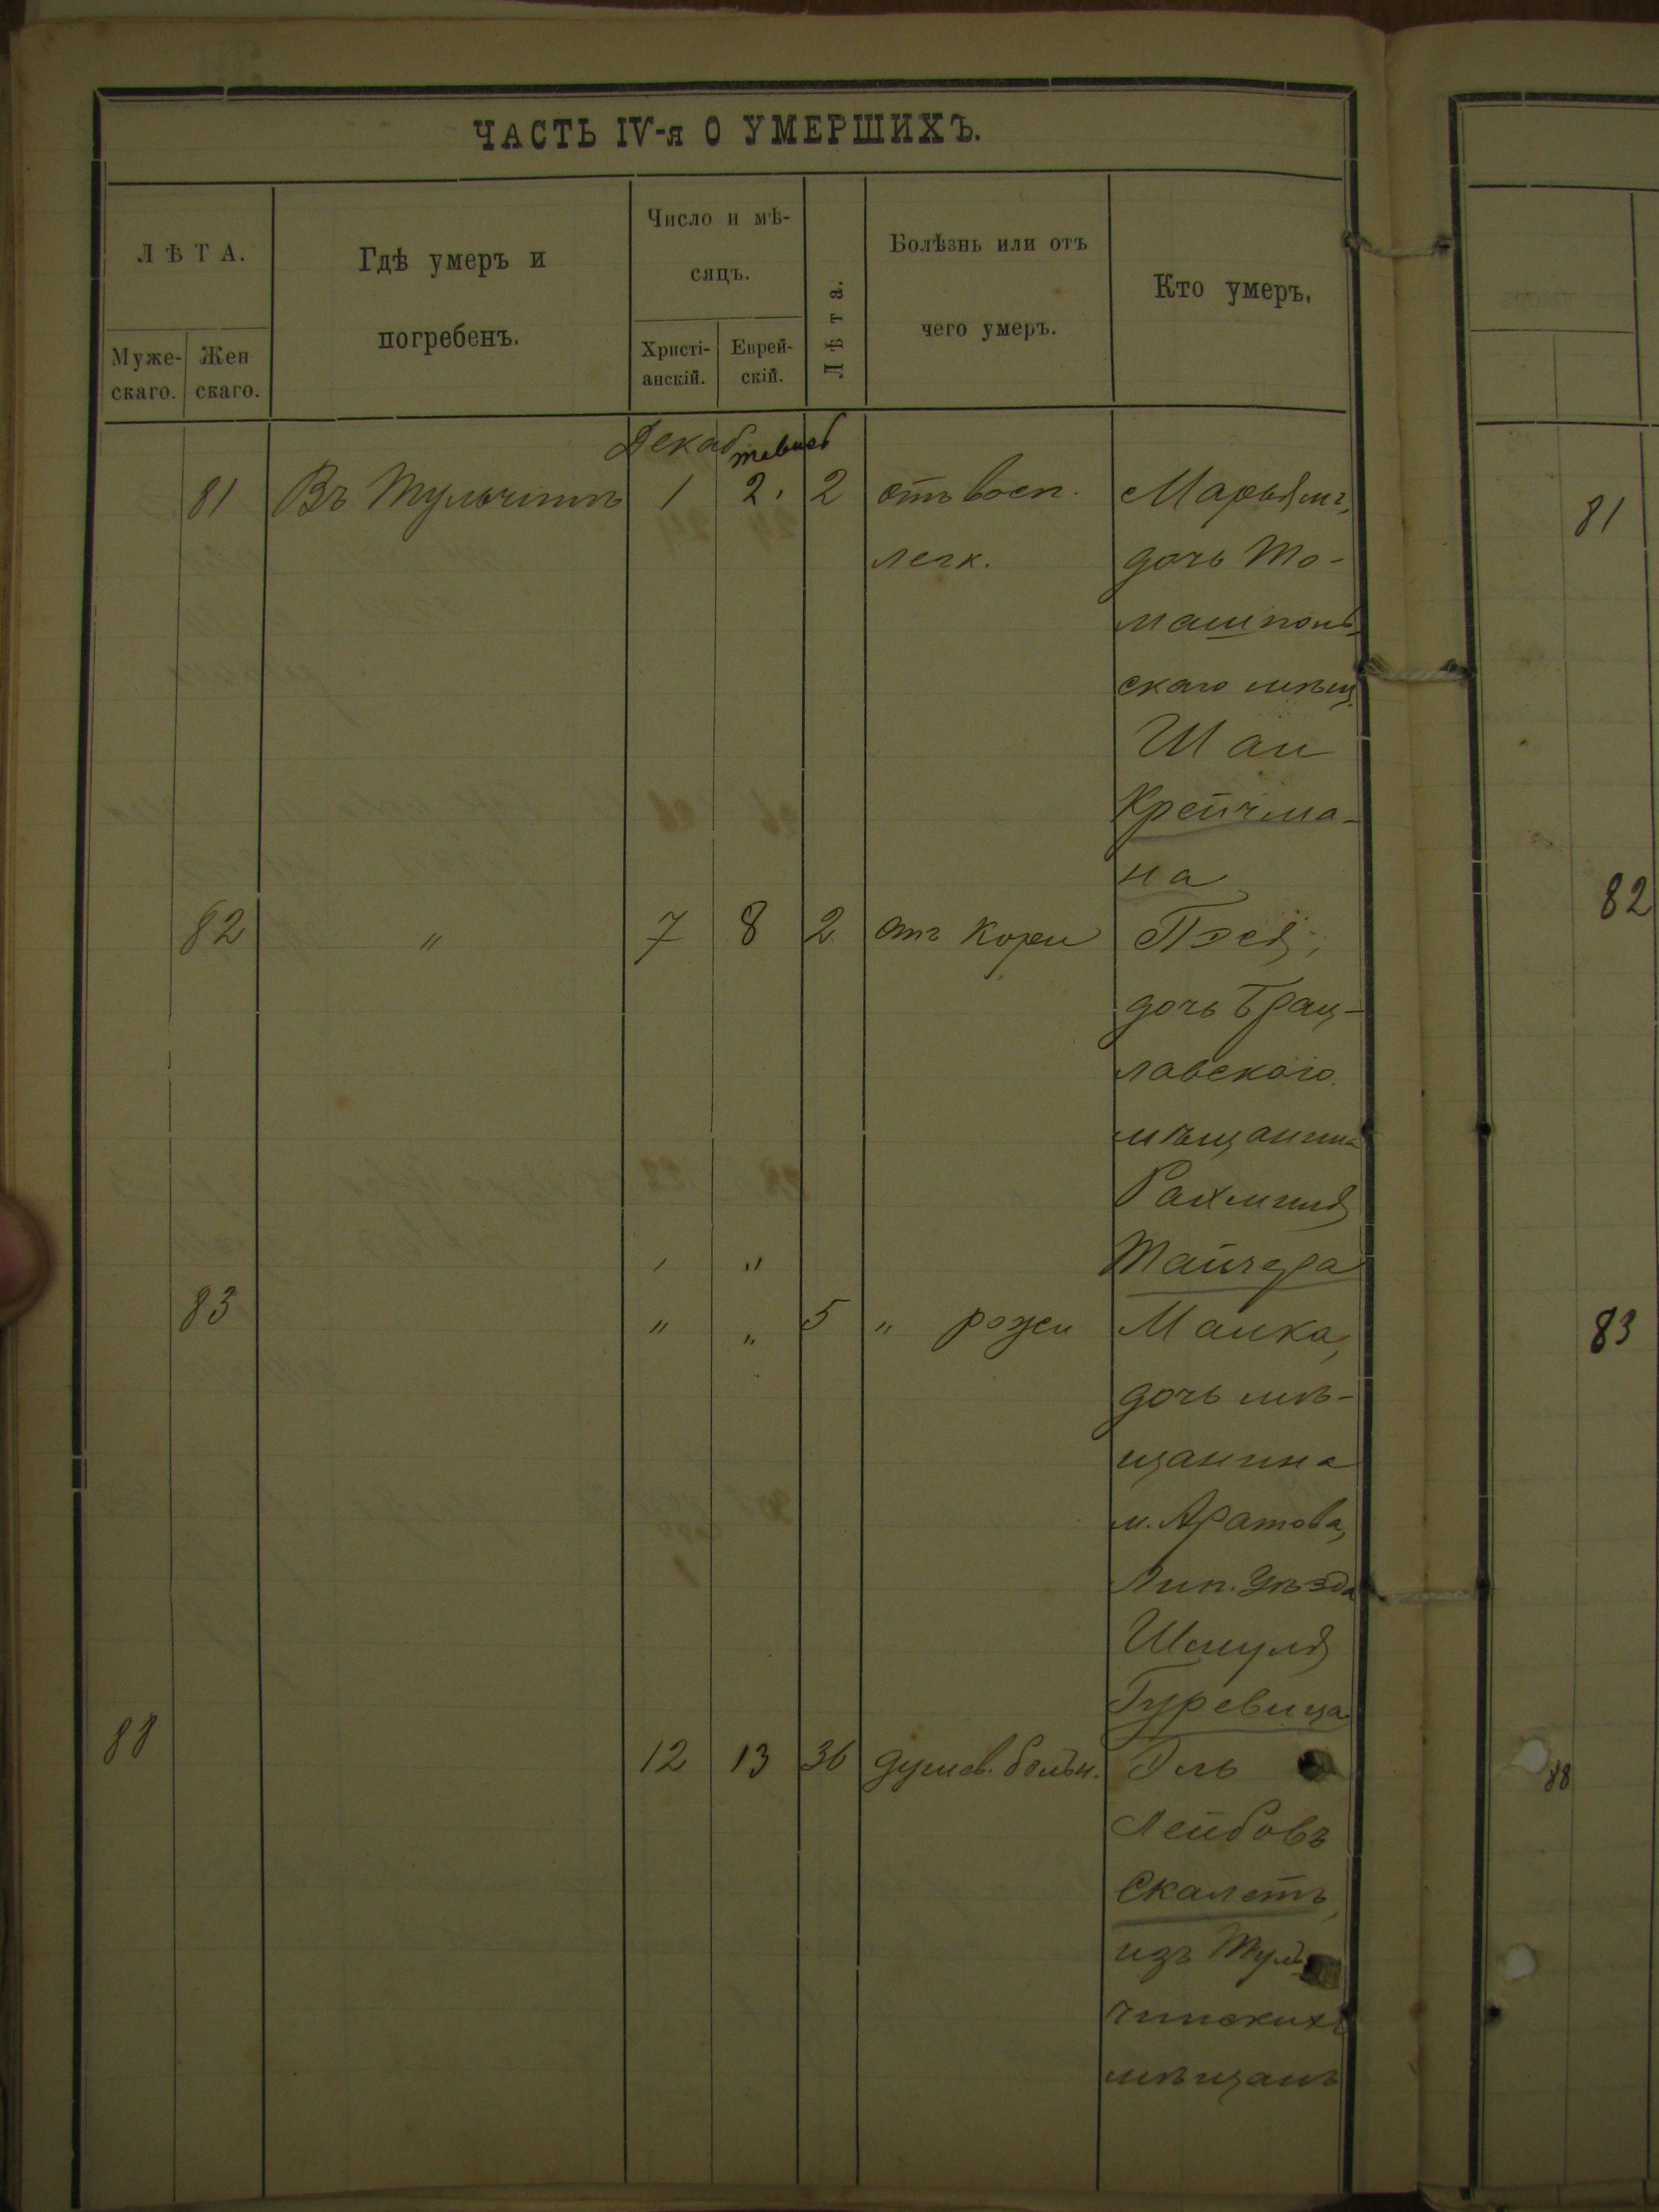 ЧАСТЬ IV-я О УМЕРШИХЪ.
ЛѢТА.
Муже-
скаго.
Жен
скаго.
Гдѣ умеръ и
погребенъ.
Число и мѣ-
сяцъ.
Христі-
анскій.
Еврей-
скій.
Лѣта.
Болѣзнь или отъ
чего умеръ.
Кто умеръ.
Декаб тевиеб
81 Въ Тульчинѣ 1 2. 2 отъ восп. Марьямъ,
легк. дочь То-
машполь
скаго мѣщ.
Шаи
Крейчма-
на
82 " 7 8 2 отъ кори Пэся,
дочь Брац-
лавскаго
мѣщанина
Рахмиля
Тайчера
83 " " 5 " рожи Малка,
дочь мѣ-
щанина
м. Аратова,
Лип. Уѣзда
Шмуля
Гуревица
88 12 13 36 душев. болѣн. Эль
Лейбовъ
Скалетъ,
изъ Туль
чинскихъ
мѣщанъ
81
82
83
88